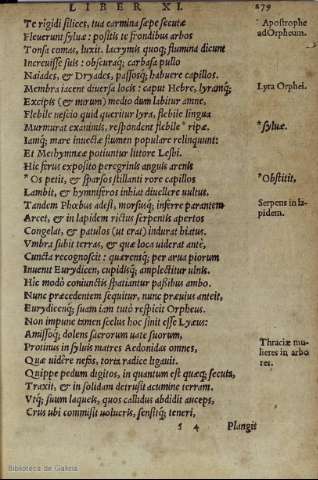 LIBER XI. 279
Te rigidi silices, tua carmina sæpe secutæ
Fleuerunt syluæ: positis te frondibus arbos
Tonsa comas, luxit. lacrymis quoq; flumina dicunt
Increuisse suis: obscuraq; carbasa pullo
Naiades, & Dryades, passosq; habuere capillos.
Membra iacent diuersa locis: caput Hebre, lyramq;
Excipis (& mirum) medio dum labitur amne,
Flebile nescio quid queritur lyra, flebile lingua
Murmurat exanimis, respondent flebile * ripæ.
Iamq; mare inuectæ flumen populare relinquunt:
Et Methymneæ potiuntur littore Lesbi.
Hic ferus expositum peregrinis anguis arenis
* Os petit, & sparsos stillanti rore capillos
Lambit, & hymniferos inhiat diuellere uultus.
Tandem Phœbus adest, morsusq; inferre parantem
Arcet, & in lapidem rictus serpentis apertos
Congelat, & patulos (ut erat) indurat hiatus.
Vmbra subit terras, & quæ loca uiderat antè,
Cuncta recognoscit: quærensq; per arua piorum
Inuenit Eurydicen, cupidisq; amplectitur ulnis.
Hic modò coniunctis spatiantur passibus ambo.
Nunc præcedentem sequitur, nunc præuius anteit,
Eurydicenq; suam iam tutò respicit Orpheus.
Non impune tamen scelus hoc sinit esse Lyæus:
Amissoq; dolens sacrorum uate suorum,
Protinus in syluis matres Aedonidas omnes,
Quæ uidêre nefas, torta radice ligauit.
Quippe pedum digitos, in quantum est quæq; secuta,
Traxit, & in solidam detrusit acumine terram.
Vtq; suum laqueis, quos callidus abdidit auceps,
Crus ubi commisit uolucris, sensitq; teneri,
s 4 Plangit
Apostrophe
ad Orpheum.
Lyra Orphei.
* syluæ.
* Obstitit,
Serpens in la-
pidem.
Thraciæ mu-
lieres in arbo
res.
Biblioteca de Galicia